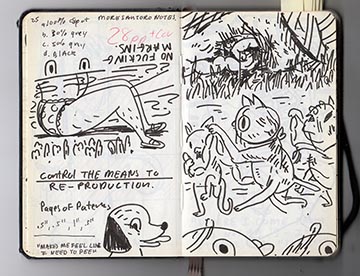 25
MORE SANTORO NOTES.
a. 100% Spot
b. 30% grey
c. 50% grey
d. BLACK
28pp + cov
NO FUCKING
MARGINS.
CONTROL THE MEANS TO
RE-PRODUCTION.
Pages of Patterns
.5", .5", 1", 2"
"MAKES ME FEEL LIKE
I NEED TO PEE"